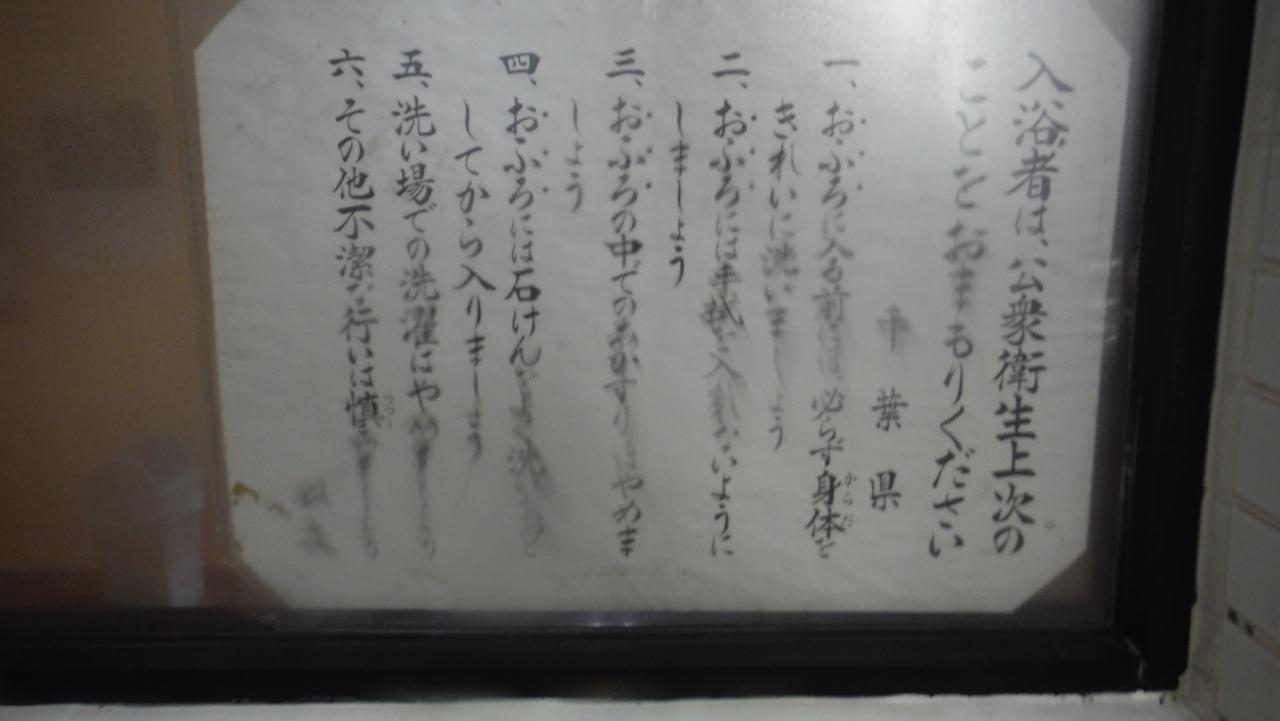 入浴者は、公衆衛生上次の
ことをおまもりください
千葉県
一、おふろに入る前には必らず身体を
からだ
きれいに洗いましょう
二、おふろには手拭を入れないように
しましょう
三、おふろの中でのあかすりはやめま
しょう
四、おふろには石けんをよく洗
してから入りましょう
五、洗い場での洗濯はやめましょう
六、その他不潔な行いは慎みましょう
つつし